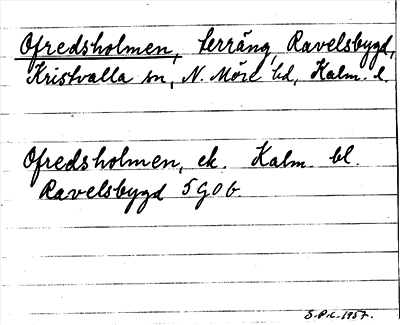 Ofredsholmen, terräng, Ravelsbygd,
Kristvalla sn, N. Möre hd, Kalm. l.
Ofredsholmen, ek. Kalm. bl.
Ravelsbygd 5 G 0 b.
S.P.L. 1957.